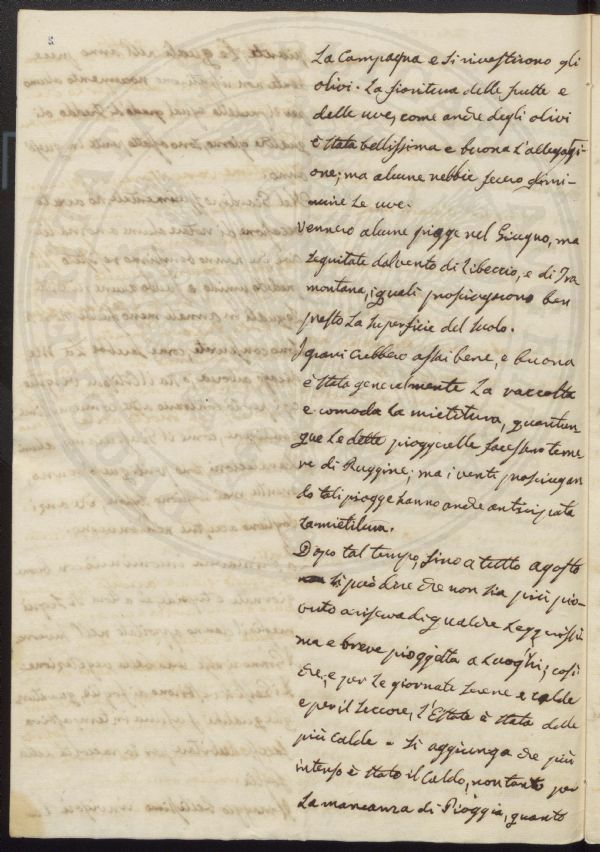 La Campagna e si rivestirono gli
olivi. La fioritura delle frutte e
delle uve, come anche degli olivi
è stata bellissima e buona l'allegagi-
one; ma alcune nebbie fecero dimi-
nuire le uve.
Vennero alcune piogge nel Giugno, ma
seguitate dal vento di libeccio, e di Tra
montana, i quali prosciugorono ben
presto la superficie del suolo.
I grani crebbero assai bene, e buona
è stata generalmente la raccolta
e comoda la mietitura, quantun-
que le dette pioggerelle facessero teme
re di Ruggine; ma i venti prosciugan
do tali piogge hanno anche anticipata
la mietitura.
Dopo tal tempo, sino a tutto agosto
si può dire che non sia più pio-
vuto a riserva di qualche leggerissi
ma e breve pioggetta a luoghi; cosi
che, e per le giornate serene e calde
e per il seccore, l'Estate è stata delle
più calde. Si aggiunga che più
intenso è stato il caldo, non tanto per
la mancanza di Pioggia, quanto